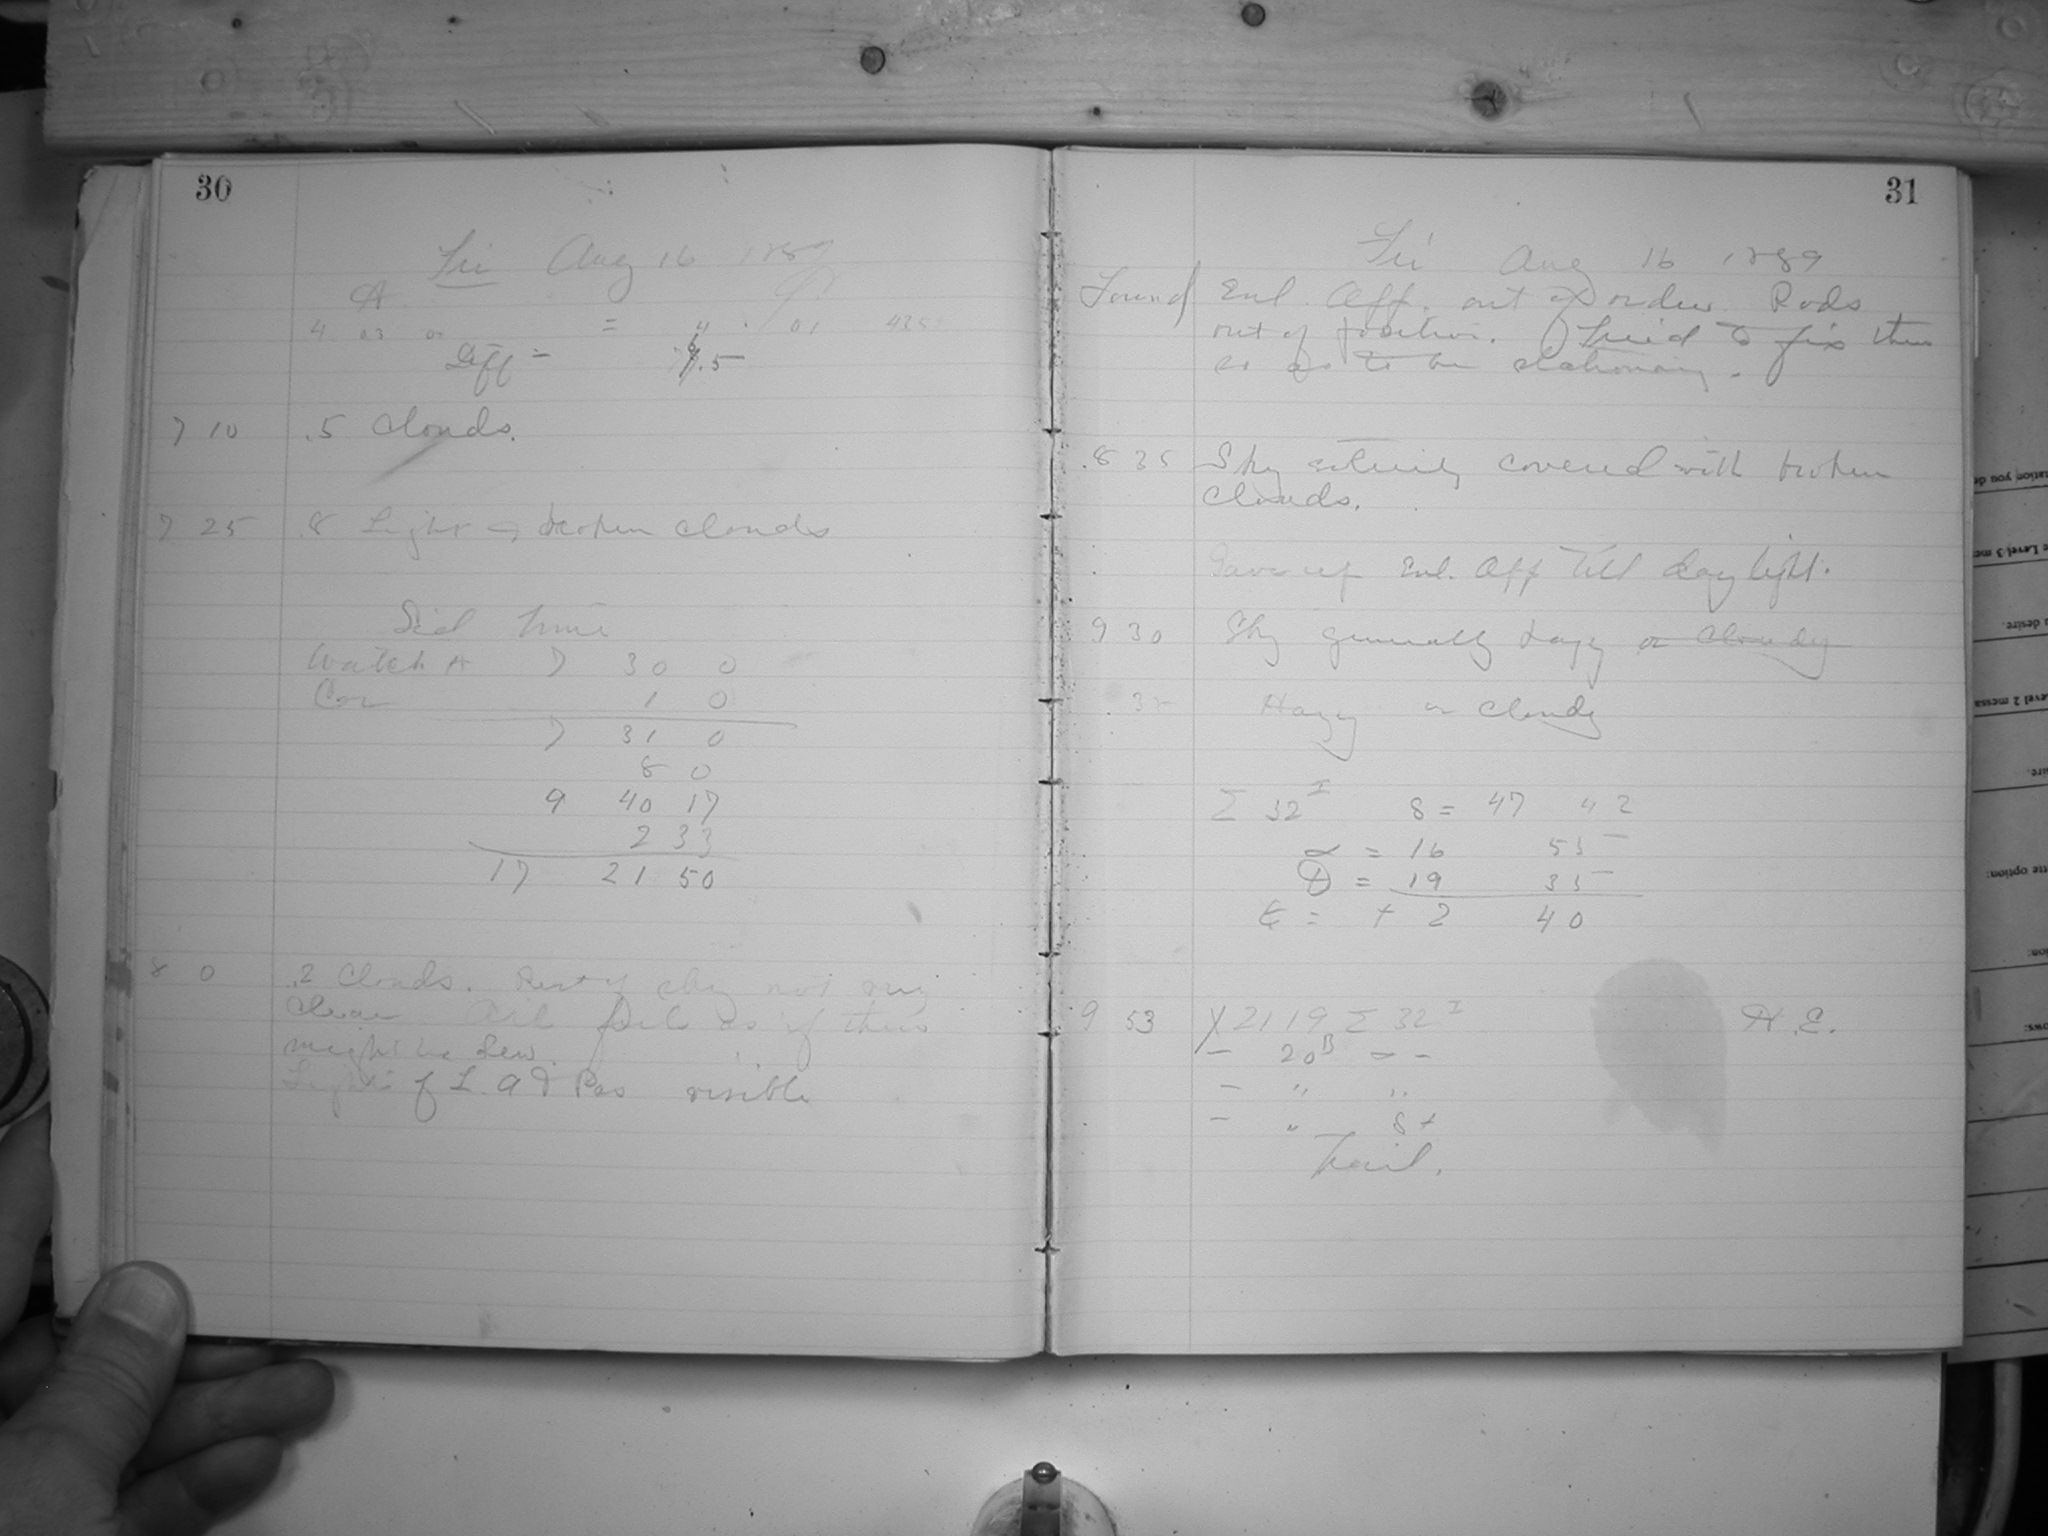 30
Fri Aug 16 1889
A
4 03 0 = 4 01 43.5
Diff = .5
7 10 .5 Clouds.
7 25 .8 Light broken clouds
Sid Time
Watch A 7 30 0
Cor 1 0
7 31 0
8 0
9 40 17
2 33
17 21 50
8 0 .2 Clouds. Rest of sky not very
clear. Air feels as if there
might be dew.
Lights of L. A & Pas visible
31
Fri Aug 16 1889
Found Enl. App. out of order. Rods
out of position. Tried to fix them
so as to be stationary.
8 35 Sky entirely covered with broken
clouds.
Gave up Enl. App till daylight.
9 30 Sky generally hazy or cloudy
35 Hazy or cloudy
Σ 32 I 8 = 47 42
α = 16 55
D = 19 35
E = + 2 40
9 53 Y 2119 Σ 32 I H.E.
— 20 B — —
— " "
— " 8 +
Trail.